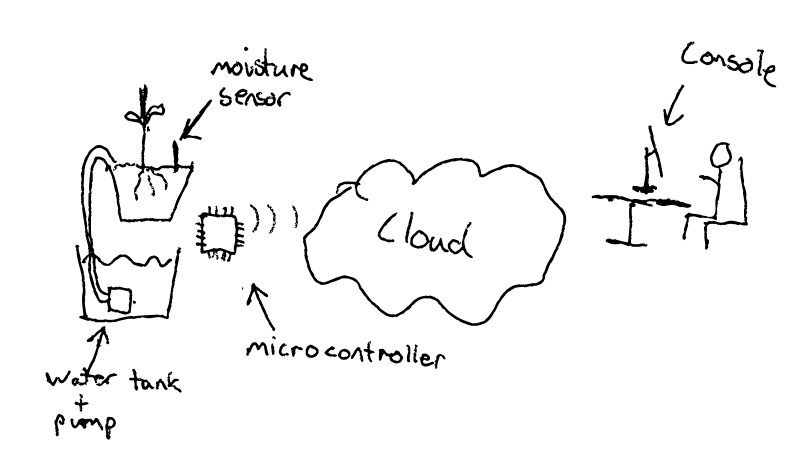 moisture
sensor
Console
Cloud
microcontroller
water tank
+
pump